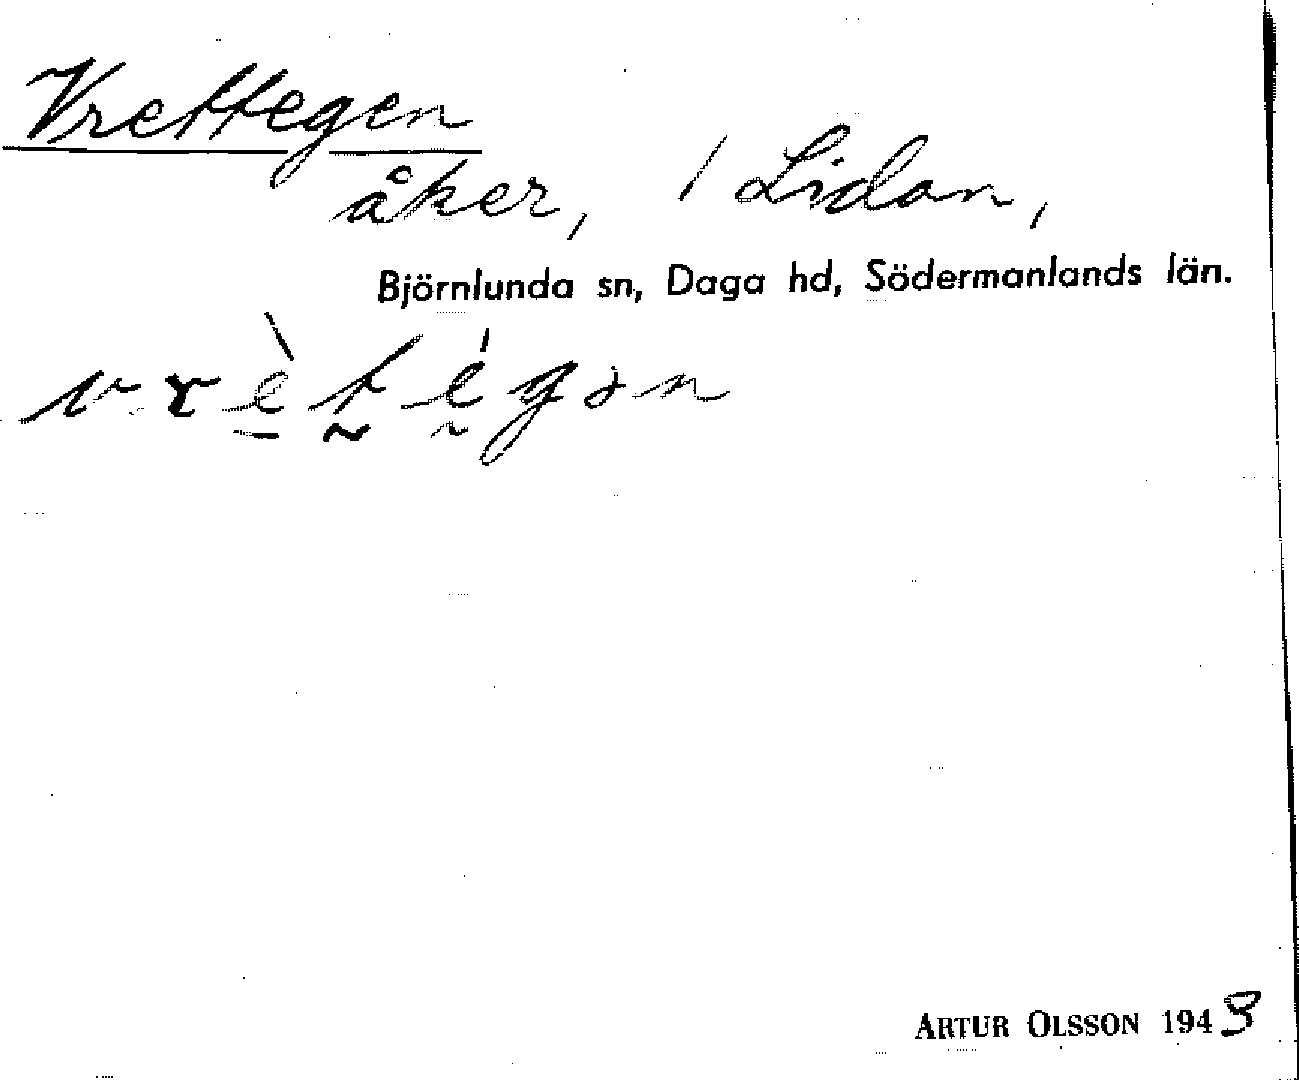 Vrettegen
åker, / Lidan,
Björnlunda sn, Daga hd, Södermanlands län.
vrètégən
ARTUR OLSSON 1943